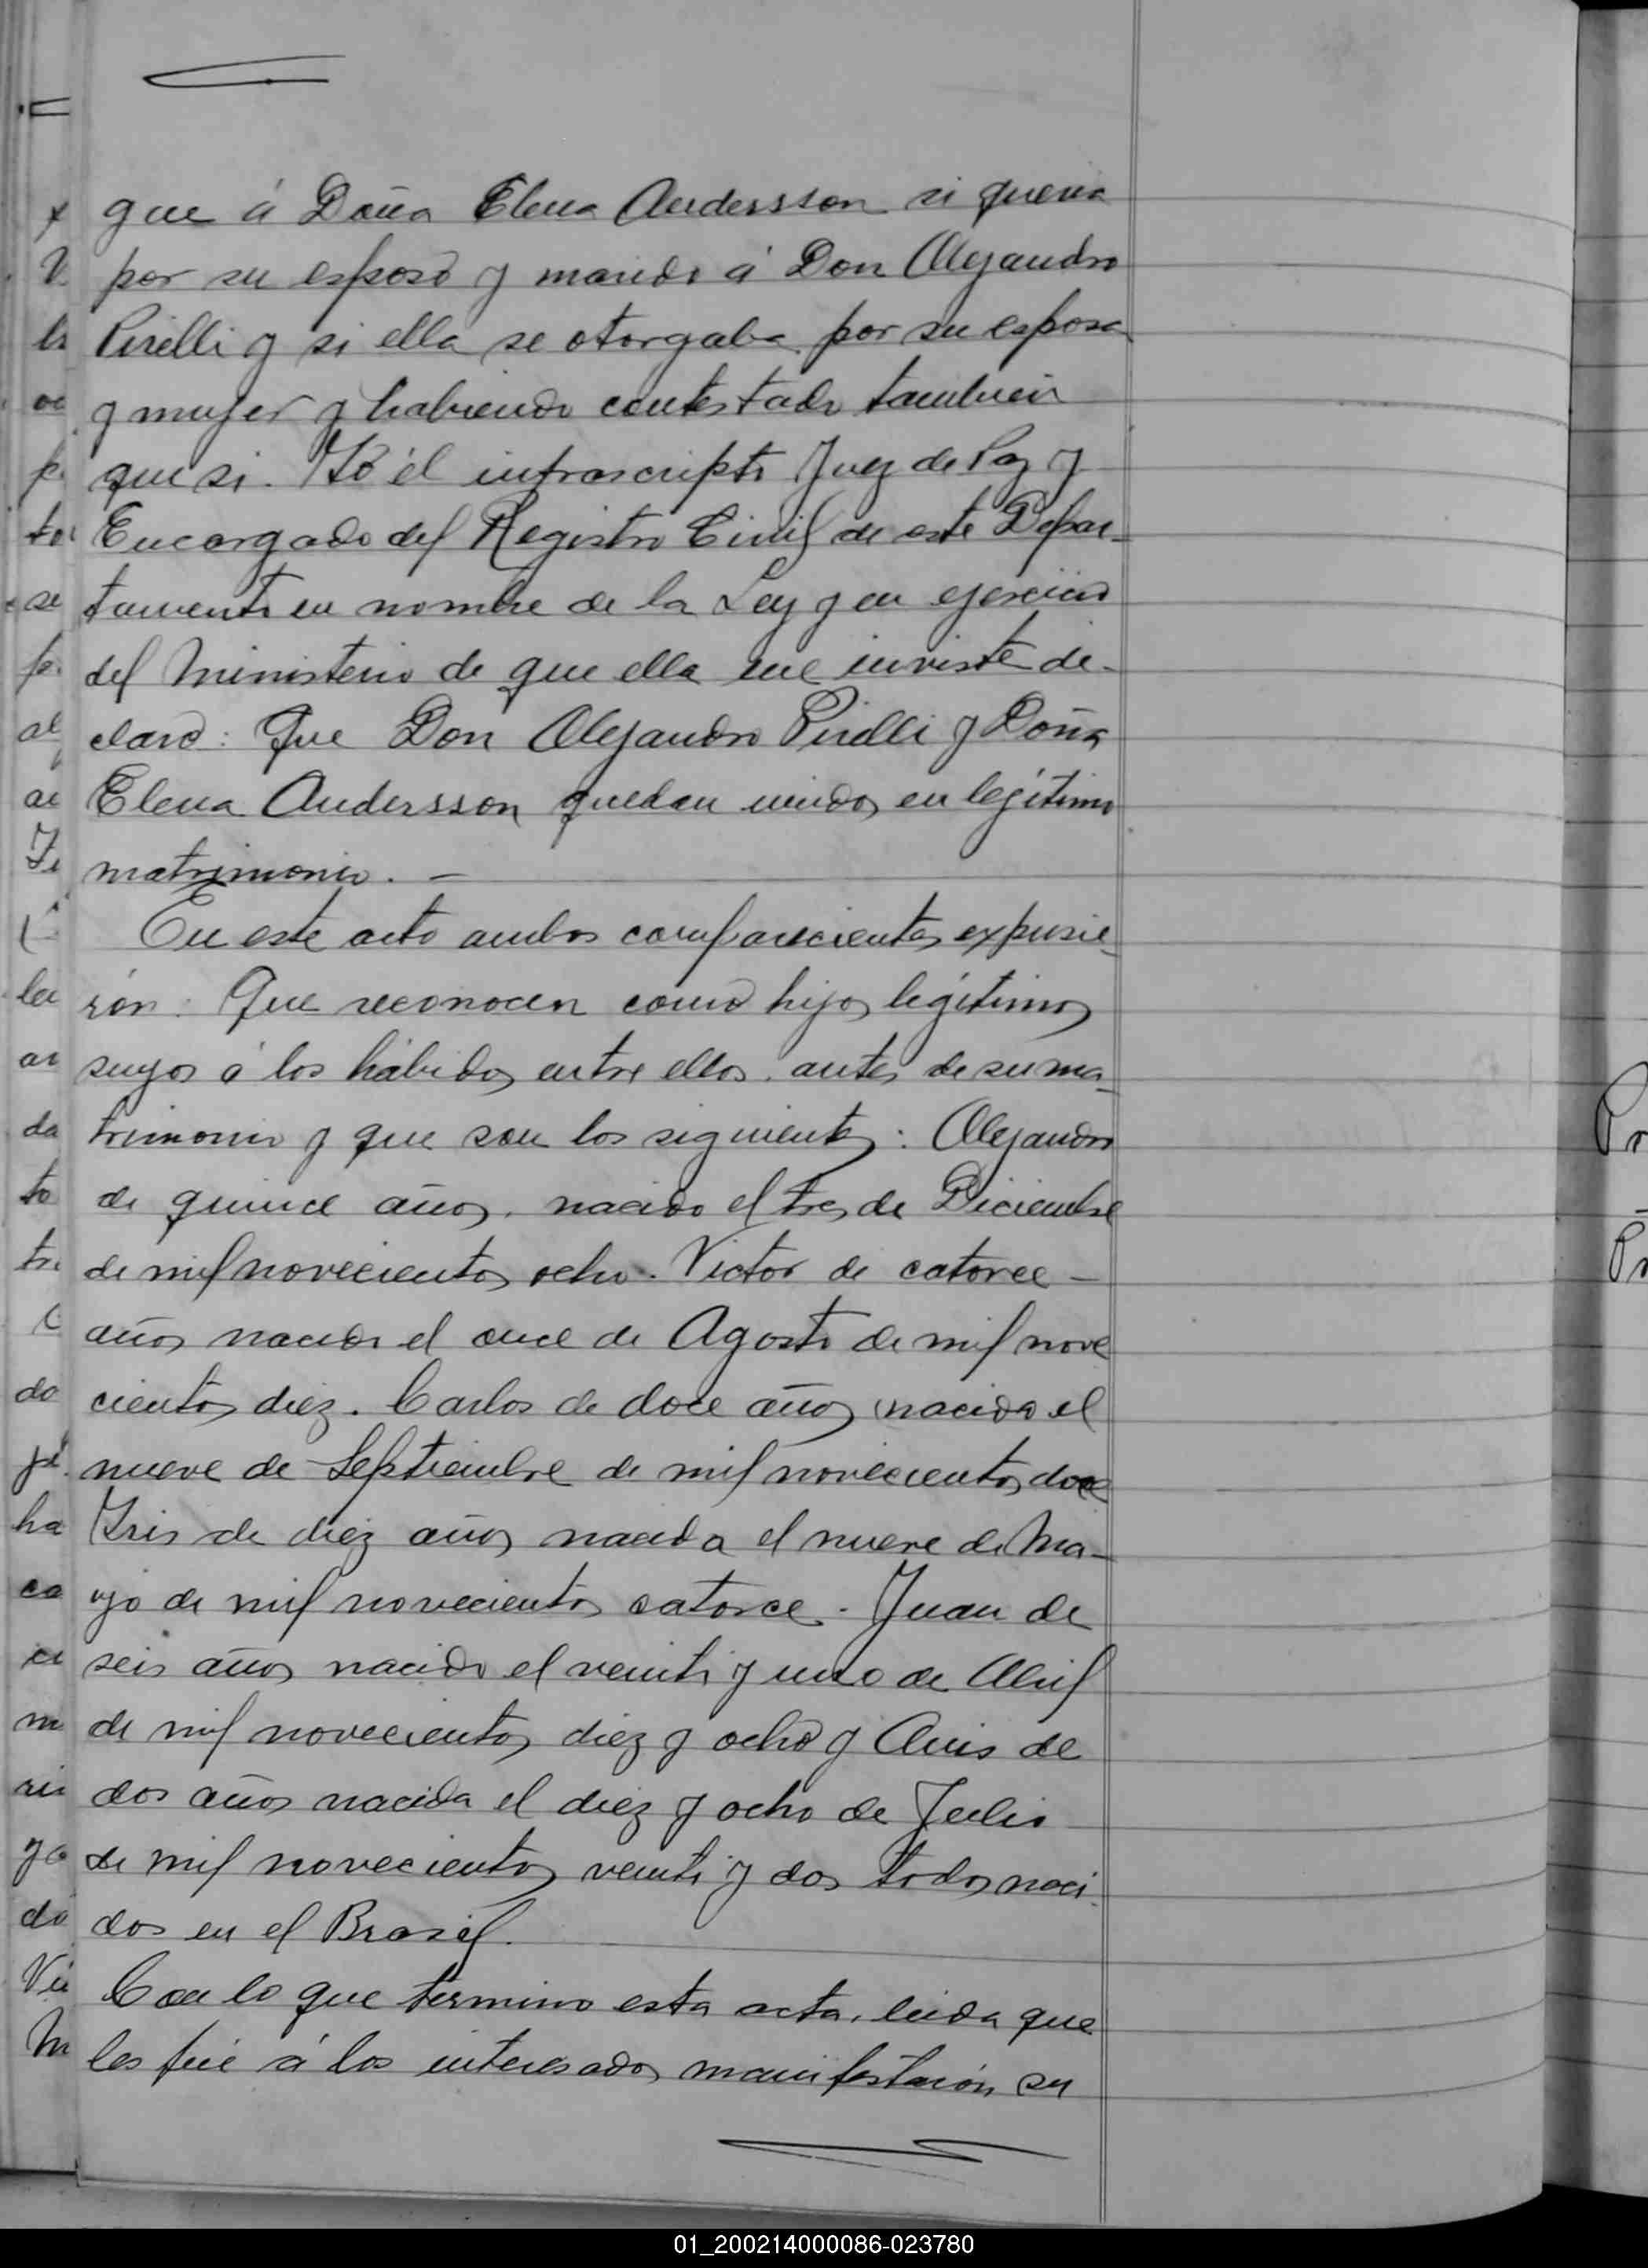 que á Doña Elena Andersson si queria
por su esposo y marido á Don Alejandro
Pirelli y si ella se otorgaba por su esposa
y mujer y habiendo contestado tambien
que si. Yo él infrascripto Juez de Paz y
Encargado del Registro Civil de este Depar-
tamento en nombre de la Ley y en ejercicio
del Ministerio de que ella me inviste de-
claro: Que Don Alejandro Pirelli y Doña
Elena Andersson quedan unidos en legítimo
matrimonio. —
En este acto ambos comparecientes expusie-
rón: Que reconocen como hijos legítimos
suyos á los hábidos entre ellos antes de su ma-
trimonio y que son los siguientes: Alejandro
de quince años, nacido el tres de Diciembre
de mil novecientos ocho. Victor de catorce —
años nacido el once de Agosto de mil nove
cientos diez. Carlos de doce años nacido el
nueve de Septiembre de mil novecientos doce
Iris de diez años nacida el nueve de Ma-
yo de mil novecientos catorce. Juan de
seis años nacido el veinti y uno de Abril
de mil novecientos diez y ocho y Anis de
dos años nacida el diez y ocho de Julio
de mil novecientos veinti y dos todos naci-
dos en el Brasil.
Con lo que termino esta acta, leida que
les fué á los interesados manifestarón su
01_200214000086-023780